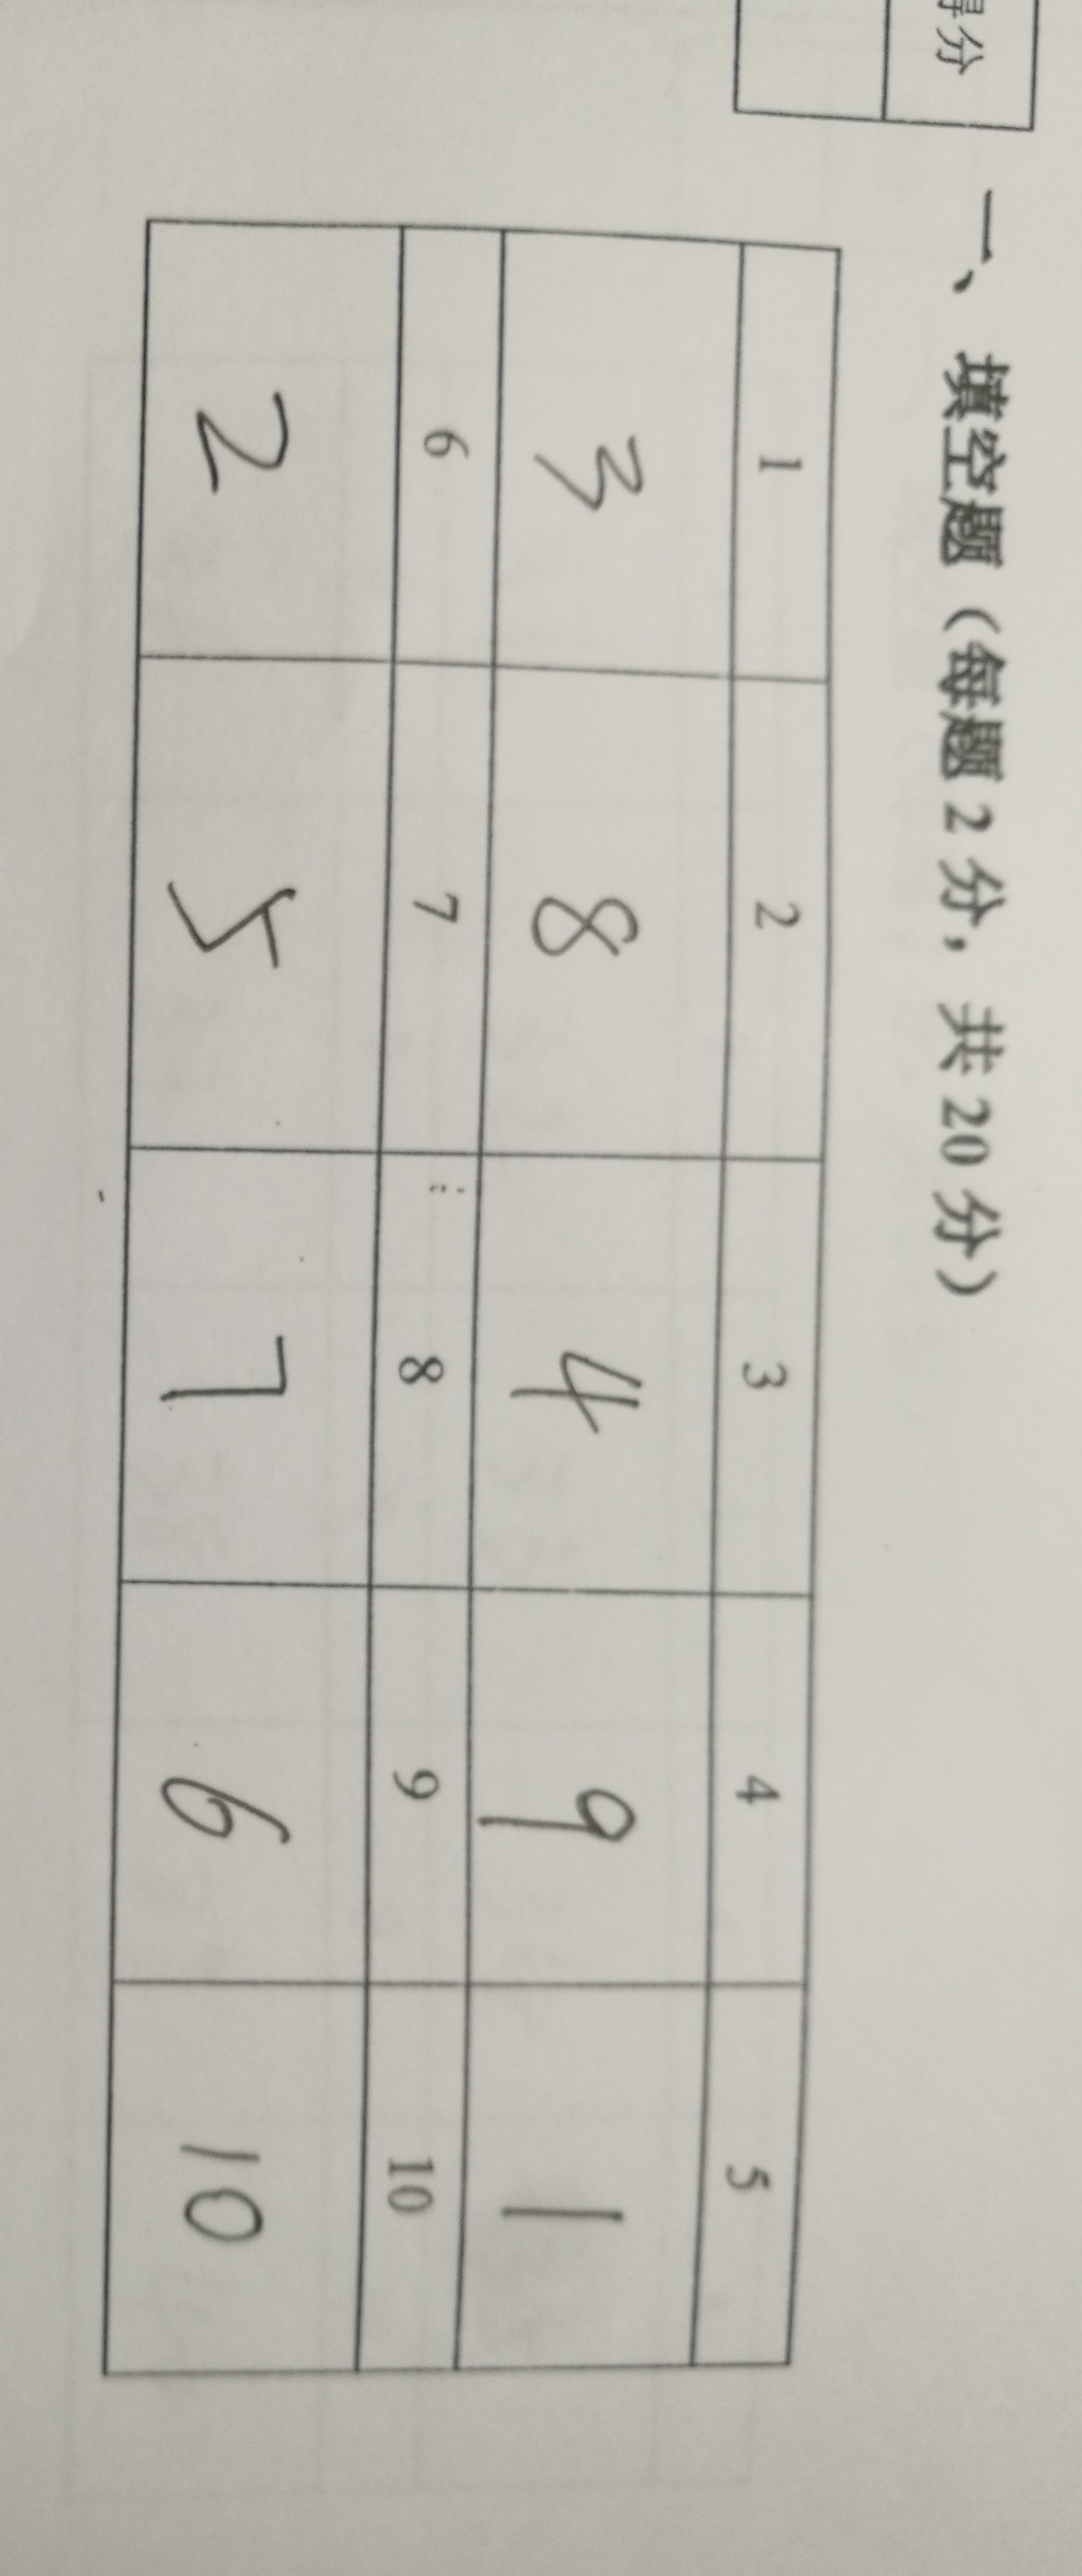 得分
一、填空题（每题2分，共20分）
1 2 3 4 5
3 8 4 9 1
6 7 8 9 10
2 5 7 6 10